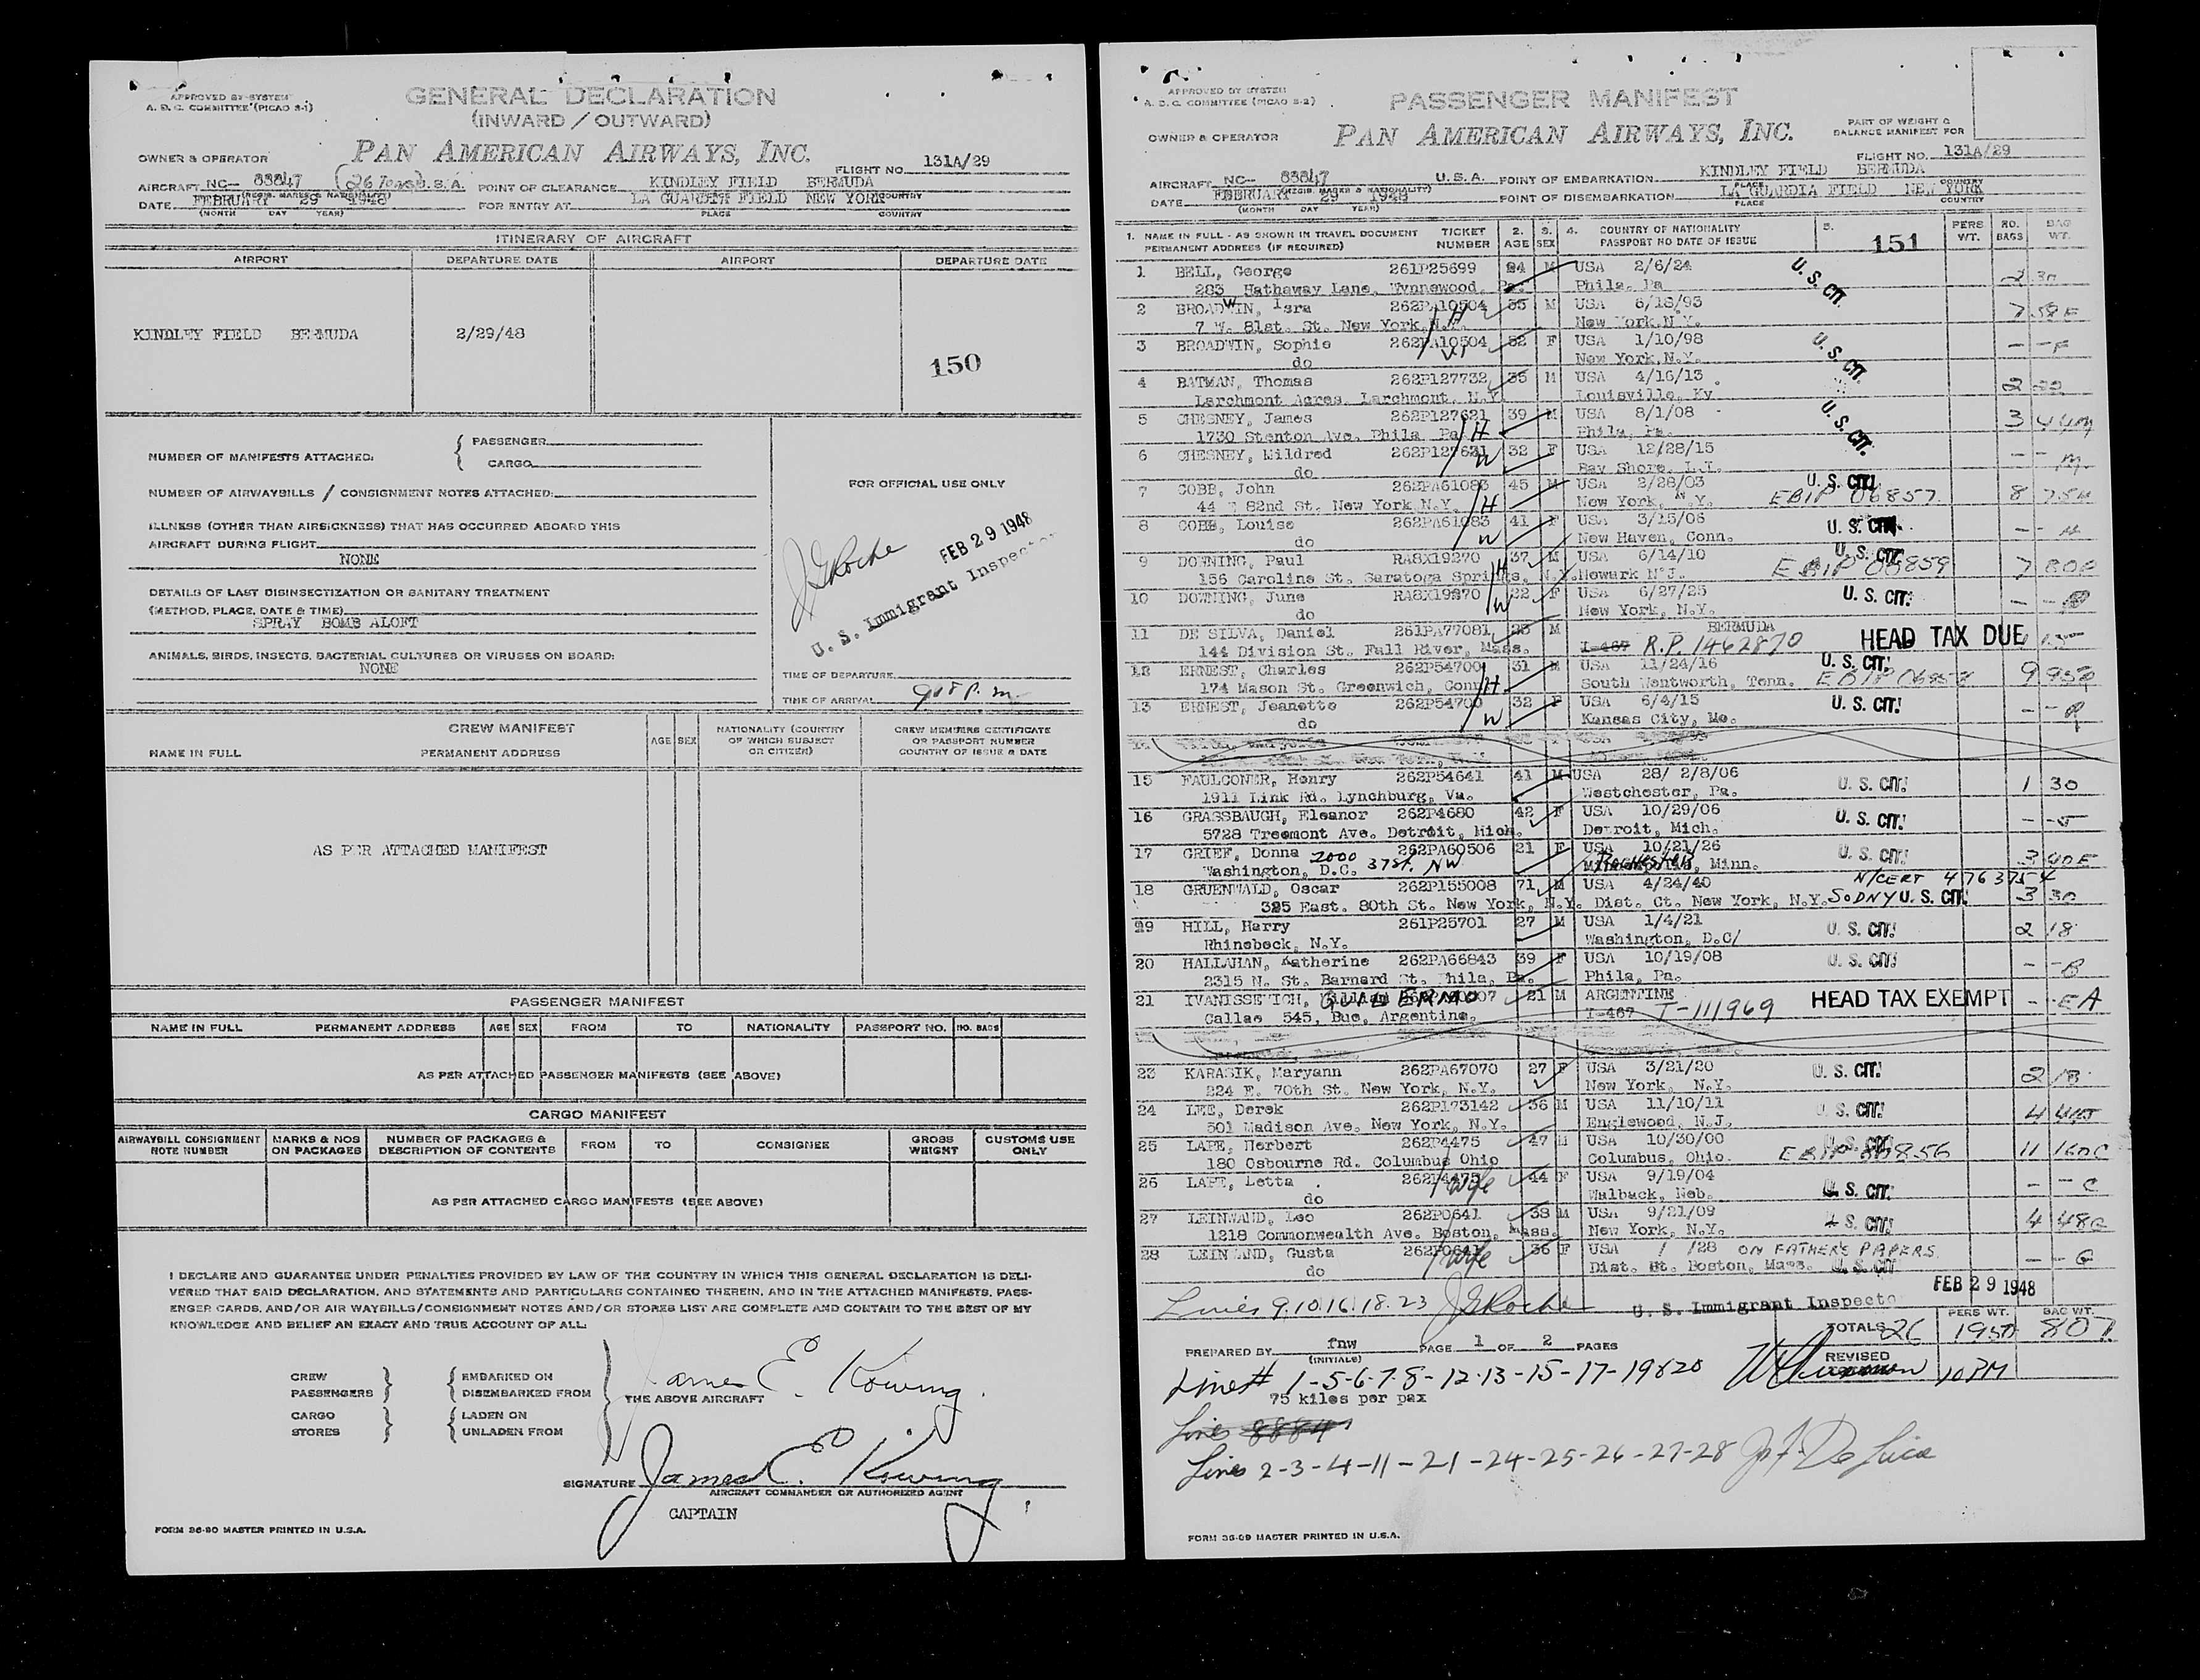 APPROVED BY SYSTEM
A. D. C. COMMITTEE (PICAO S-1)
GENERAL DECLARATION
(INWARD / OUTWARD)
OWNER & OPERATOR
PAN AMERICAN AIRWAYS, INC.
FLIGHT NO. 131A/29
AIRCRAFT NC- 88847 (26 Tons) U.S.A. POINT OF CLEARANCE KINDLEY FIELD BERMUDA
(REGIS. MARKS & NATIONALITY) COUNTRY
DATE FEBRUARY 29 1948 FOR ENTRY AT LA GUARDIA FIELD NEW YORK
(MONTH DAY YEAR) PLACE COUNTRY
ITINERARY OF AIRCRAFT
AIRPORT DEPARTURE DATE AIRPORT DEPARTURE DATE
KINDLEY FIELD BERMUDA 2/29/48
150
NUMBER OF MANIFESTS ATTACHED: { PASSENGER
CARGO
NUMBER OF AIRWAYBILLS / CONSIGNMENT NOTES ATTACHED:
ILLNESS (OTHER THAN AIRSICKNESS) THAT HAS OCCURRED ABOARD THIS
AIRCRAFT DURING FLIGHT
NONE
DETAILS OF LAST DISINSECTIZATION OR SANITARY TREATMENT
(METHOD, PLACE, DATE & TIME)
SPRAY BOMB ALOFT
ANIMALS, BIRDS, INSECTS, BACTERIAL CULTURES OR VIRUSES ON BOARD:
NONE
FOR OFFICIAL USE ONLY
JGRoche FEB 29 1948
U. S. Immigrant Inspector
TIME OF DEPARTURE
TIME OF ARRIVAL 908 P. m.
CREW MANIFEST
NAME IN FULL PERMANENT ADDRESS
AGE SEX
NATIONALITY (COUNTRY
OF WHICH SUBJECT
OR CITIZEN)
CREW MEMBERS CERTIFICATE
OR PASSPORT NUMBER
COUNTRY OF ISSUE & DATE
AS PER ATTACHED MANIFEST
PASSENGER MANIFEST
NAME IN FULL PERMANENT ADDRESS AGE SEX FROM TO NATIONALITY PASSPORT NO. NO. BAGS
AS PER ATTACHED PASSENGER MANIFESTS (SEE ABOVE)
CARGO MANIFEST
AIRWAYBILL CONSIGNMENT
NOTE NUMBER
MARKS & NOS
ON PACKAGES
NUMBER OF PACKAGES &
DESCRIPTION OF CONTENTS
FROM TO CONSIGNEE
GROSS
WEIGHT
CUSTOMS USE
ONLY
AS PER ATTACHED CARGO MANIFESTS (SEE ABOVE)
I DECLARE AND GUARANTEE UNDER PENALTIES PROVIDED BY LAW OF THE COUNTRY IN WHICH THIS GENERAL DECLARATION IS DELI-
VERED THAT SAID DECLARATION, AND STATEMENTS AND PARTICULARS CONTAINED THEREIN, AND IN THE ATTACHED MANIFESTS, PASS-
ENGER CARDS, AND/OR AIR WAYBILLS/CONSIGNMENT NOTES AND/OR STORES LIST ARE COMPLETE AND CONTAIN TO THE BEST OF MY
KNOWLEDGE AND BELIEF AN EXACT AND TRUE ACCOUNT OF ALL:
CREW
PASSENGERS
EMBARKED ON
DISEMBARKED FROM
CARGO
STORES
LADEN ON
UNLADEN FROM
James E. Kiwing
THE ABOVE AIRCRAFT
SIGNATURE James E. Kiwing
AIRCRAFT COMMANDER OR AUTHORIZED AGENT
CAPTAIN
FORM 36-90 MASTER PRINTED IN U.S.A.
APPROVED BY SYSTEM
A. D. C. COMMITTEE (PICAO S-2)
PASSENGER MANIFEST
OWNER & OPERATOR
PAN AMERICAN AIRWAYS, INC.
PART OF WEIGHT &
BALANCE MANIFEST FOR
FLIGHT NO. 131A/29
AIRCRAFT NC- 88847 U.S.A. POINT OF EMBARKATION KINDLEY FIELD BERMUDA
(REGIS. MARKS & NATIONALITY) PLACE COUNTRY
DATE FEBRUARY 29 1948 POINT OF DISEMBARKATION LA GUARDIA FIELD NEW YORK
(MONTH DAY YEAR) PLACE COUNTRY
1. NAME IN FULL - AS SHOWN IN TRAVEL DOCUMENT TICKET 2. 3. 4. COUNTRY OF NATIONALITY 5. 151 PERS NO. BAG
PERMANENT ADDRESS (IF REQUIRED) NUMBER AGE SEX PASSPORT NO DATE OF ISSUE WT. BAGS WT.
1 BELL, George 261P25699 24 M USA 2/6/24 U. S. CIT. 2 30
283 Hathaway Lane, Wynnewood, Pa. Phila. Pa
2 BROADWIN, Isra 262PA10504 55 M USA 6/18/93 7 58 F
7 W. 81st. St. New York, N.Y. H New York N.Y.
3 BROADWIN, Sophie 262PA10504 52 F USA 1/10/98 U. S. CIT. - - F
do W New York N.Y.
4 BATMAN, Thomas 262P127732 35 M USA 4/16/13 2 22
Larchmont Acres, Larchmont, N.Y Louisville, Ky
5 CHESNEY, James 262P127621 39 M USA 8/1/08 U. S. CIT. 3 44M
1730 Stenton Ave. Phila Pa H Phila, Pa.
6 CHESNEY, Mildred 262P127621 32 F USA 12/28/15 - - M
do W Bay Shore, L.I.
7 COBB, John 262PA61083 45 M USA 2/28/03 U. S. CIT. 8 75H
44 E 82nd St. New York N.Y. H New York, N.Y. EBIP 06857
8 COBB, Louise 262PA61083 41 F USA 3/15/06 U. S. CIT. - - H
do W New Haven, Conn.
9 DOWNING, Paul RA8X19270 37 M USA 6/14/10 U. S. CIT. 7 80
156 Caroline St. Saratoga Springs, N.Y. H Newark N.J. EBIP 06859
10 DOWNING, June RA8X19270 22 F USA 6/27/25 U. S. CIT. - -
do W New York, N.Y.
11 DE SILVA, Daniel 261PA77081 M BERMUDA HEAD TAX DUE
144 Division St. Fall River, Mass. I-467 R.P. 1462870
12 ERNEST, Charles 262P54700 31 M USA 11/24/16 U. S. CIT. 9 95
174 Mason St. Greenwich, Conn H South Wentworth, Tenn. EBIP
13 ERNEST, Jeanette 262P54700 32 F USA 6/4/15 U. S. CIT. - -
do W Kansas City, Mo.
15 FAULCONER, Henry 262P54641 41 M USA 28/ 2/8/06 U. S. CIT. 1 30
1911 Link Rd. Lynchburg, Va. Westchester, Pa.
16 GRASSBAUGH, Eleanor 262P4680 42 F USA 10/29/06 U. S. CIT. - -
5728 Treemont Ave. Detroit, Mich. Detroit, Mich.
17 GRIEF, Donna 262PA60506 21 F USA 10/21/26 U. S. CIT. 3 40E
Washington, D.C. 2000 37 St. NW ROCHESTER, Minn.
18 GRUENWALD, Oscar 262P155008 71 M USA 4/24/40 N/CERT 4763754
325 East. 80th St. New York, N.Y. Dist. Ct. New York, N.Y. SODNY U. S. CIT. 3 30
19 HILL, Harry 261P25701 27 M USA 1/4/21 U. S. CIT. 2 18
Rhinebeck, N.Y. Washington, D.C/
20 HALLAHAN, Katherine 262PA66843 39 F USA 10/19/08 U. S. CIT. - - B
2315 N. St. Barnard St. Phila, Pa. Phila, Pa.
21 IVANISSEVICH, GUILERMO 21 M ARGENTINE HEAD TAX EXEMPT - - EA
Callao 545, Bue, Argentina, I-467 T-111969
23 KARASIK, Maryann 262PA67070 27 F USA 3/21/20 U. S. CIT. 2 18
224 E. 70th St. New York, N.Y. New York, N.Y.
24 LEE, Derek 262P173142 36 M USA 11/10/11 U. S. CIT. 4 44
501 Madison Ave. New York, N.Y. Englewood, N.J.
25 LAPE, Herbert 262P4475 47 M USA 10/30/00 U. S. CIT. 11 160C
180 Osbourne Rd. Columbus Ohio Columbus, Ohio. EBIP 06856
26 LAPE, Letta 262P4475 44 F USA 9/19/04 U. S. CIT. - - C
do wife Walback, Neb.
27 LEINWAND, Leo 262P0641 38 M USA 9/21/09 U. S. CIT. 4 48G
1218 Commonwealth Ave. Boston, Mass. New York, N.Y.
28 LEINWAND, Gusta 262P0641 36 F USA / /28 ON FATHER'S PAPERS - - G
do wife Dist. Ct. Boston, Mass. U. S. CIT
FEB 29 1948
Lines 9.10.16.18.23 JGRoche U. S. Immigrant Inspecto
TOTALS 26 PERS WT. 1950 BAG WT. 807
PREPARED BY fnw PAGE 1 OF 2 PAGES
(INITIALS)
REVISED
Line # 1-5-6-7-8-12-13-15-17-19&20 10 PM
75 kilos per pax
Lines
Lines 2-3-4-11-21-24-25-26-27-28 De Luca
FORM 36-99 MASTER PRINTED IN U.S.A.